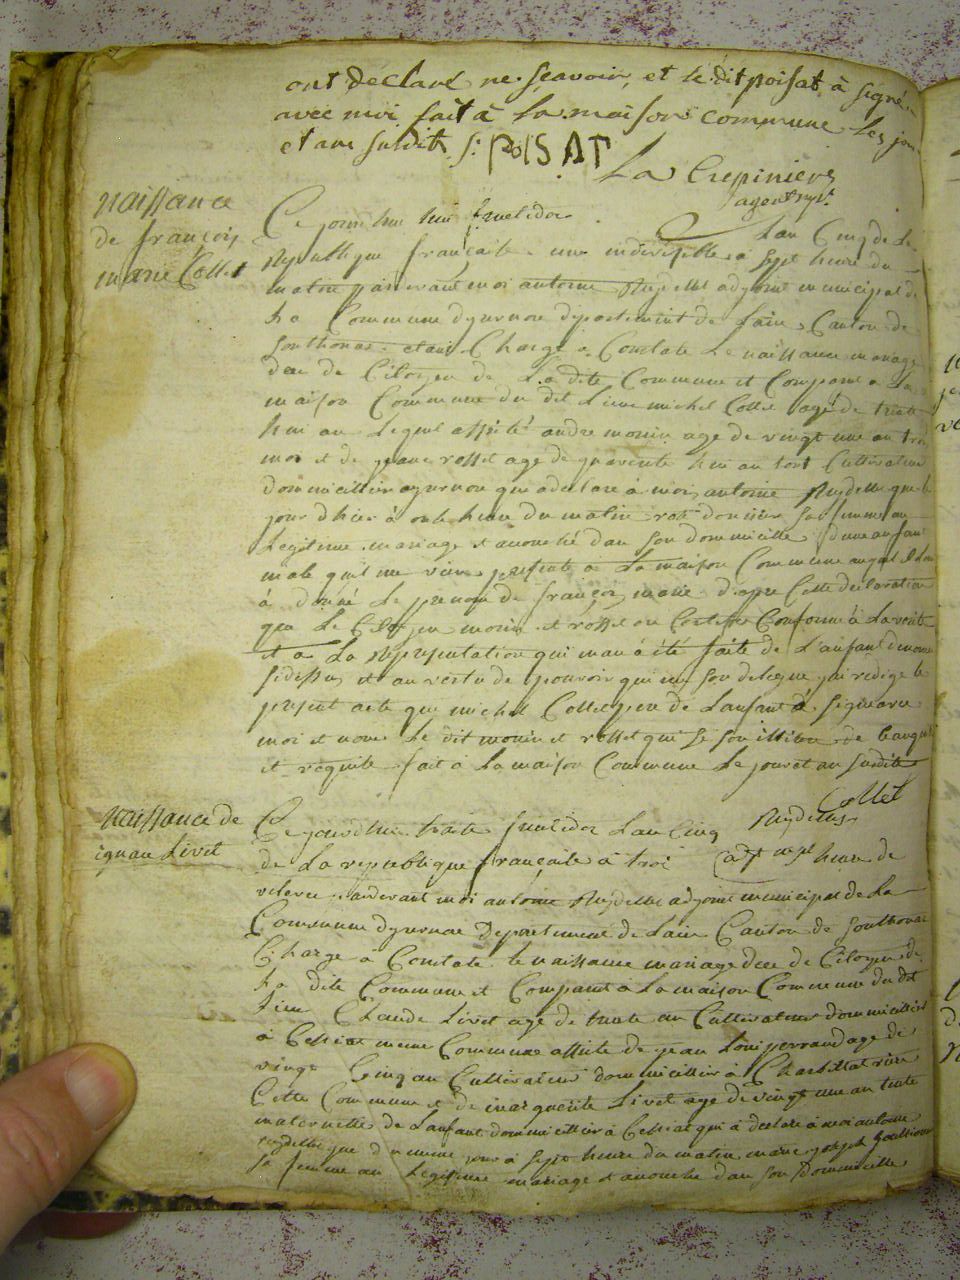 ont déclaré ne sçavoir, et le dit poisat à signé
avec moi fait à la maison commune les jour
et ans susdit S: POISAT
La Crepiniere
agent mpl.
naissance
de françois
marie Collet
Ce jourdhui hui frutidor Lan Cinq de La
Republique française une indivisible a sept heure du
matin pardevant moi antoine Reydellet adjoint municipal de
La Commune dyzernore departement de Lain Canton de
Sonthonas etant Charge a Constate Le naissance mariage
dece de Citoyen de La dite Commune et Comparu a La
maison Commune du dit Lieu michel Collet agé de trente
hui an Lequel assisté andre monin age de vingt une an troi
moi et de jeane rosset age de quarente hui an tout Cultivateur
dommicillier a yzernore qui a declare à moi antoine Reydellet que le
jour dhier à onze heure du matin
Legitime mariage et acouché dan son dommicille dune anfant
male quil me vien presente a La maison Commune auquel il Lui
à donné Le prenom de françois marie dapre Cette declaration
que Le Citoyen monin et rosset on Certifie Conforme à La verite
et a La Representation qui mau à été faite de Lanfant denome
sidessus et au vertu de pouvoir qui me son delegue jai redige le
present acte que michel Collet pere de Lanfant à signe avec
moi et none Le dit monin et rosset qui se son
et requite fait à La maison Commune Le jour et an susdit
Collet
Reydellet
naissance de
ignau Livet
Ce jourdhui trante frutidor Lan Cinq
de La republique française à troi heure de
relevee pardevant moi antoine Reydellet adjoint municipal de La
Commune dyzernore Departement de Lain Canton de Sonthonas
Charge à Constate le naissance mariage dece de Citoyen de
La dite Commune et Comparu à La maison Commune du dit
Lieu Claude Livet age de trante an Cultivateur dommicillier
à Cessiat meme Commune assiste de jean Loui perraud age de
vingt Cinq an Cultivateur dommicillier à
Cette Commune et de marguerite Livet age de vingt une an tante
maternelle de Lanfant dommicillier à Cessiat qui à declare à moi antoine
reydellet que du meme jour à sept heure du matin marie joseph
sa femme au Legitime mariage et acouche dan son Dommicille